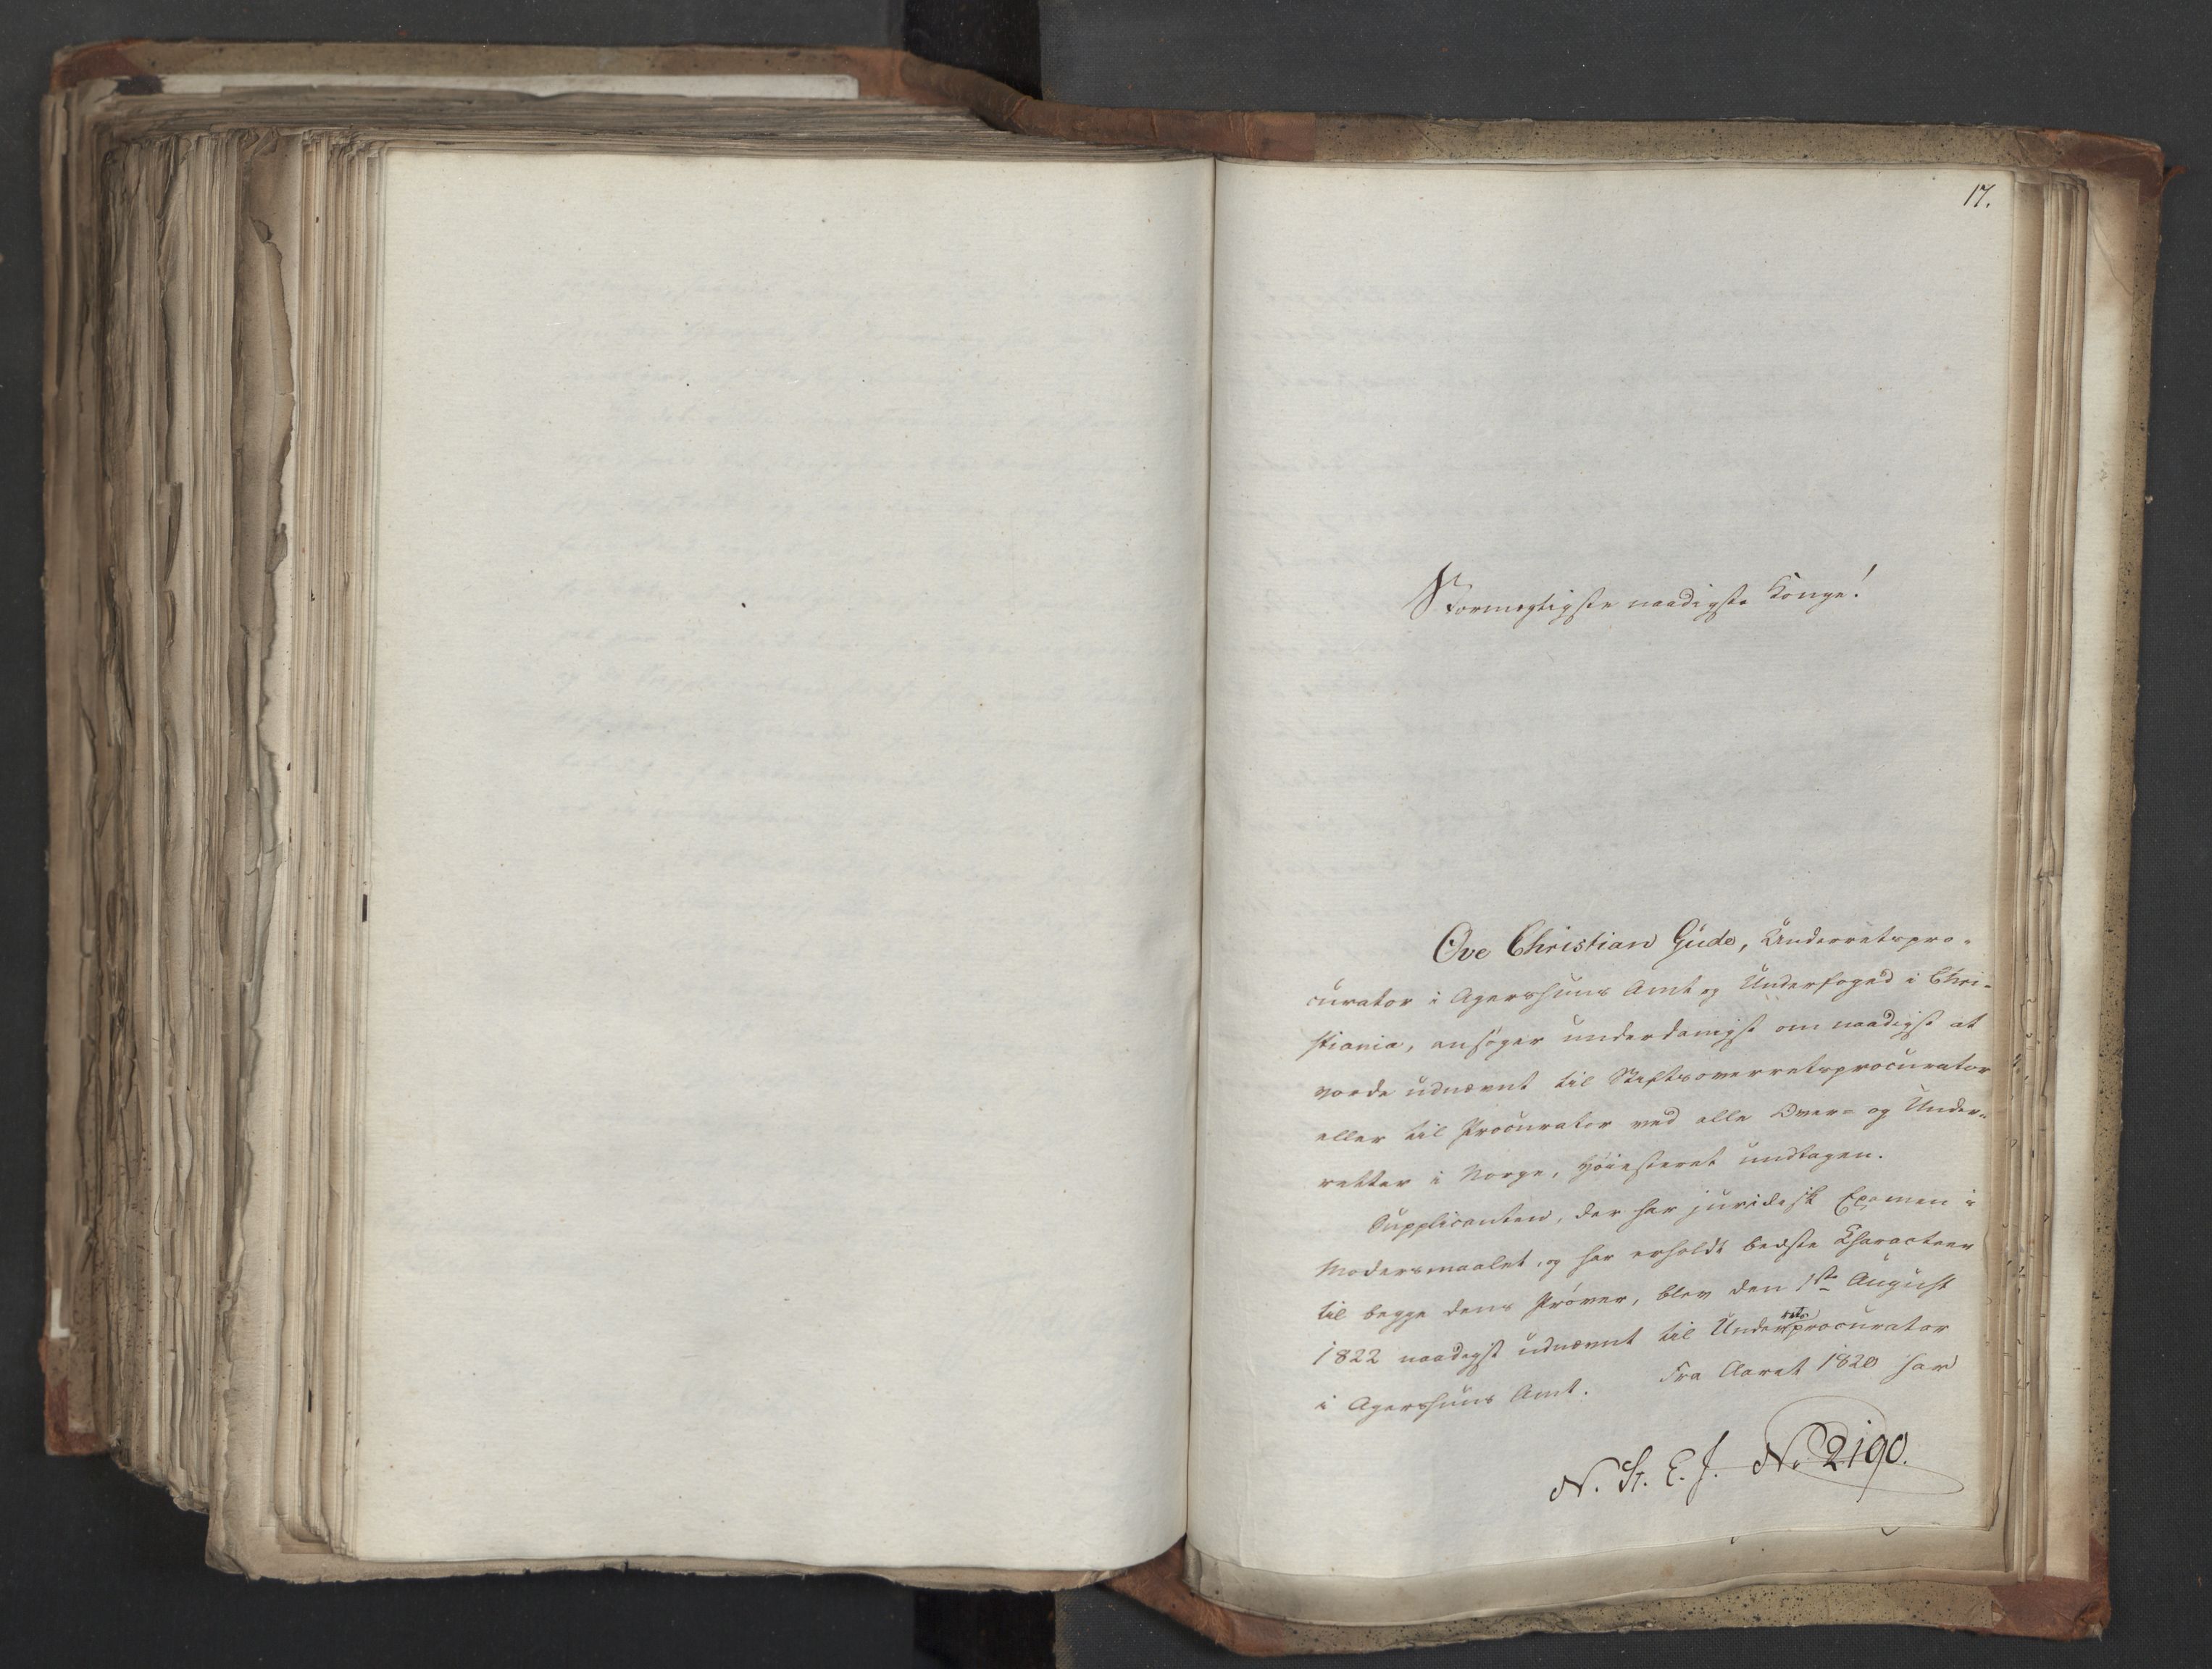 17.
Stormægtigste naadigste Konge!
Ove Christian Gude, Underretspro-
curator i Agershuus Amt og Underfoged i Chri-
stiania, ansøger underdanigst om naadigst at
vorde udnævnt til Stiftsoverretsprocurator
eller til Procurator ved alle Over- og Under-
retter i Norge, Høiesteret undtagen.
Supplicanten, der har juridisk Examen i
Modersmaalet, og har erholdt bedste Characteer
til begge dens Prøver, blev den 1ste August
1822 naadigst udnævnt til Underretsprocurator
i Agershuus Amt. Fra Aaret 1820 har
N. St. E. J. No 2190.